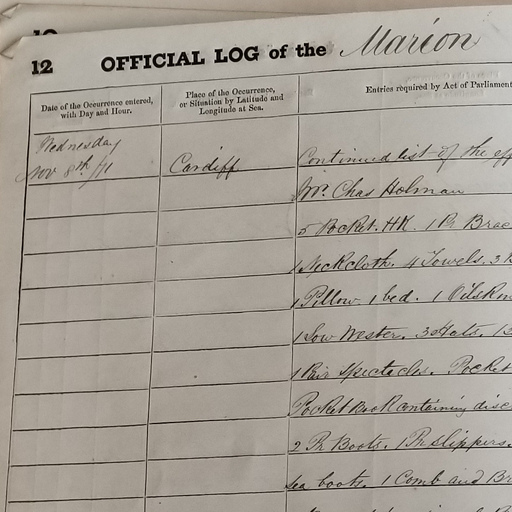 12 OFFICIAL LOG of the Marion
Date of the Occurrence entered, with Day and Hour.
Place of the Occurrence, or Situation by Latitude and Longitude at Sea.
Entries required by Act of Parliament
Wednesday
Nov 8th /71
Cardiff
Continued list of the eff
Mr. Chas Holman
5 Pocket. HK. 1 Pr Brac
1 Neckcloth. 4 Towels. 3
1 Pillow 1 bed. 1 Oilskin
1 Sow Wester. 3 Hats. 1
1 Pair Spectacles. Pocket
Pocket Book Containing disc
2 Pr Boots. 1 Pr Slippers.
Sea boots. 1 Comb and Br